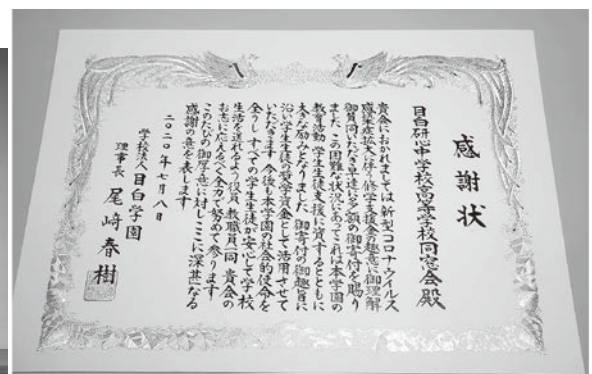 感謝状
目白研心中学校高等学校同窓会殿
貴会におかれましては新型コロナウイルス
感染症拡大に伴う修学支援金の趣意に御理解
御賛同いただき早速に多額の御寄付を賜り
ました この困難な状況にあってこれは本学園の
教育活動 学生生徒支援に資するとともに
大きな励みとなりました 御寄付の御趣旨に
沿い学生生徒の奨学資金として活用させて
いただきます 今後も本学園の社会的使命を
全うし すべての学生生徒が安心して学校
生活を送れるよう役員 教職員一同 貴会の
お志に応えるべく全力で努めて参ります
このたびの御厚意に対しここに深甚なる
感謝の意を表します
二〇二〇年七月八日
学校法人目白学園
理事長 尾﨑春樹